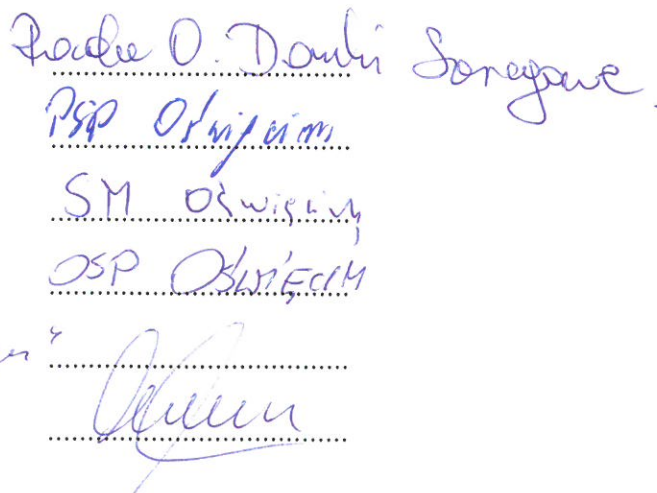 Rada O. Domki Szeregowe
PSP Oświęcim
SM Oświęcim
OSP OŚWIĘCIM